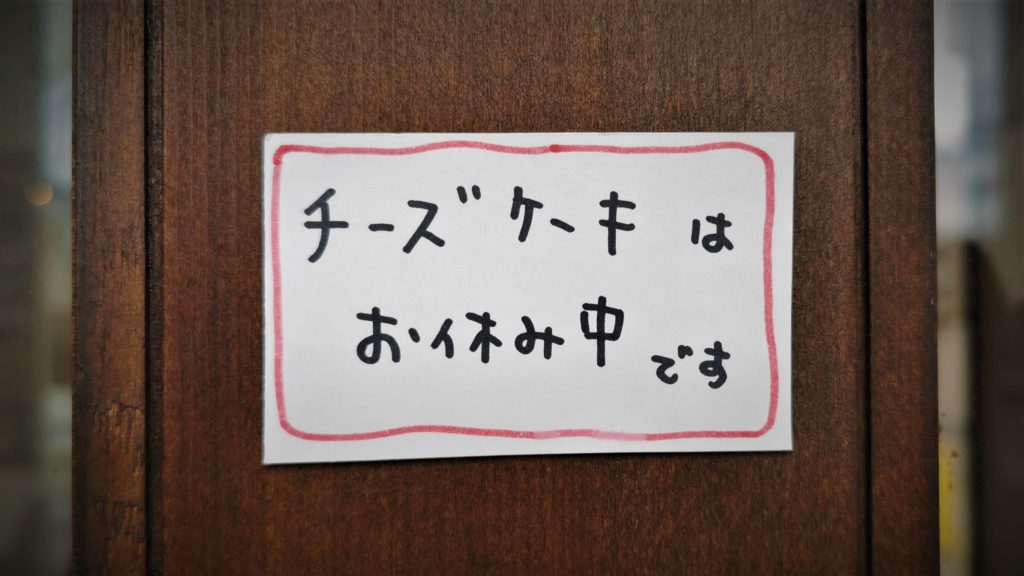 チーズケーキは
お休み中です